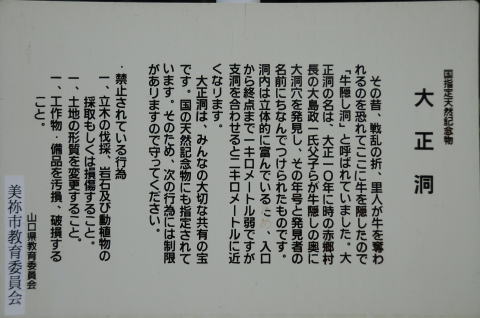 国指定天然記念物
大正洞
その昔、戦乱の折、里人が牛を奪わ
れるのを恐れてここに牛を隠したので
「牛隠し洞」と呼ばれていました。大
正洞の名は、大正一〇年に時の赤郷村
長の大島政一氏父子らが牛隠しの奥に
大洞穴を発見し、その年号と発見者の
名前にちなんでつけられたものです。
洞内は立体的に富んでいる 、入口
から終点まで一キロメートル弱ですが
支洞を合わせると二キロメートルに近
くなります。
大正洞は、みんなの大切な共有の宝
です。国の天然記念物にも指定されて
います。そのため、次の行為には制限
がありますので守ってください。
・禁止されている行為
一、立木の伐採、岩石及び動植物の
採取もしくは損傷すること。
一、土地の形質を変更すること。
一、工作物・備品を汚損、破損する
こと。
山口県教育委員会
美祢市教育委員会